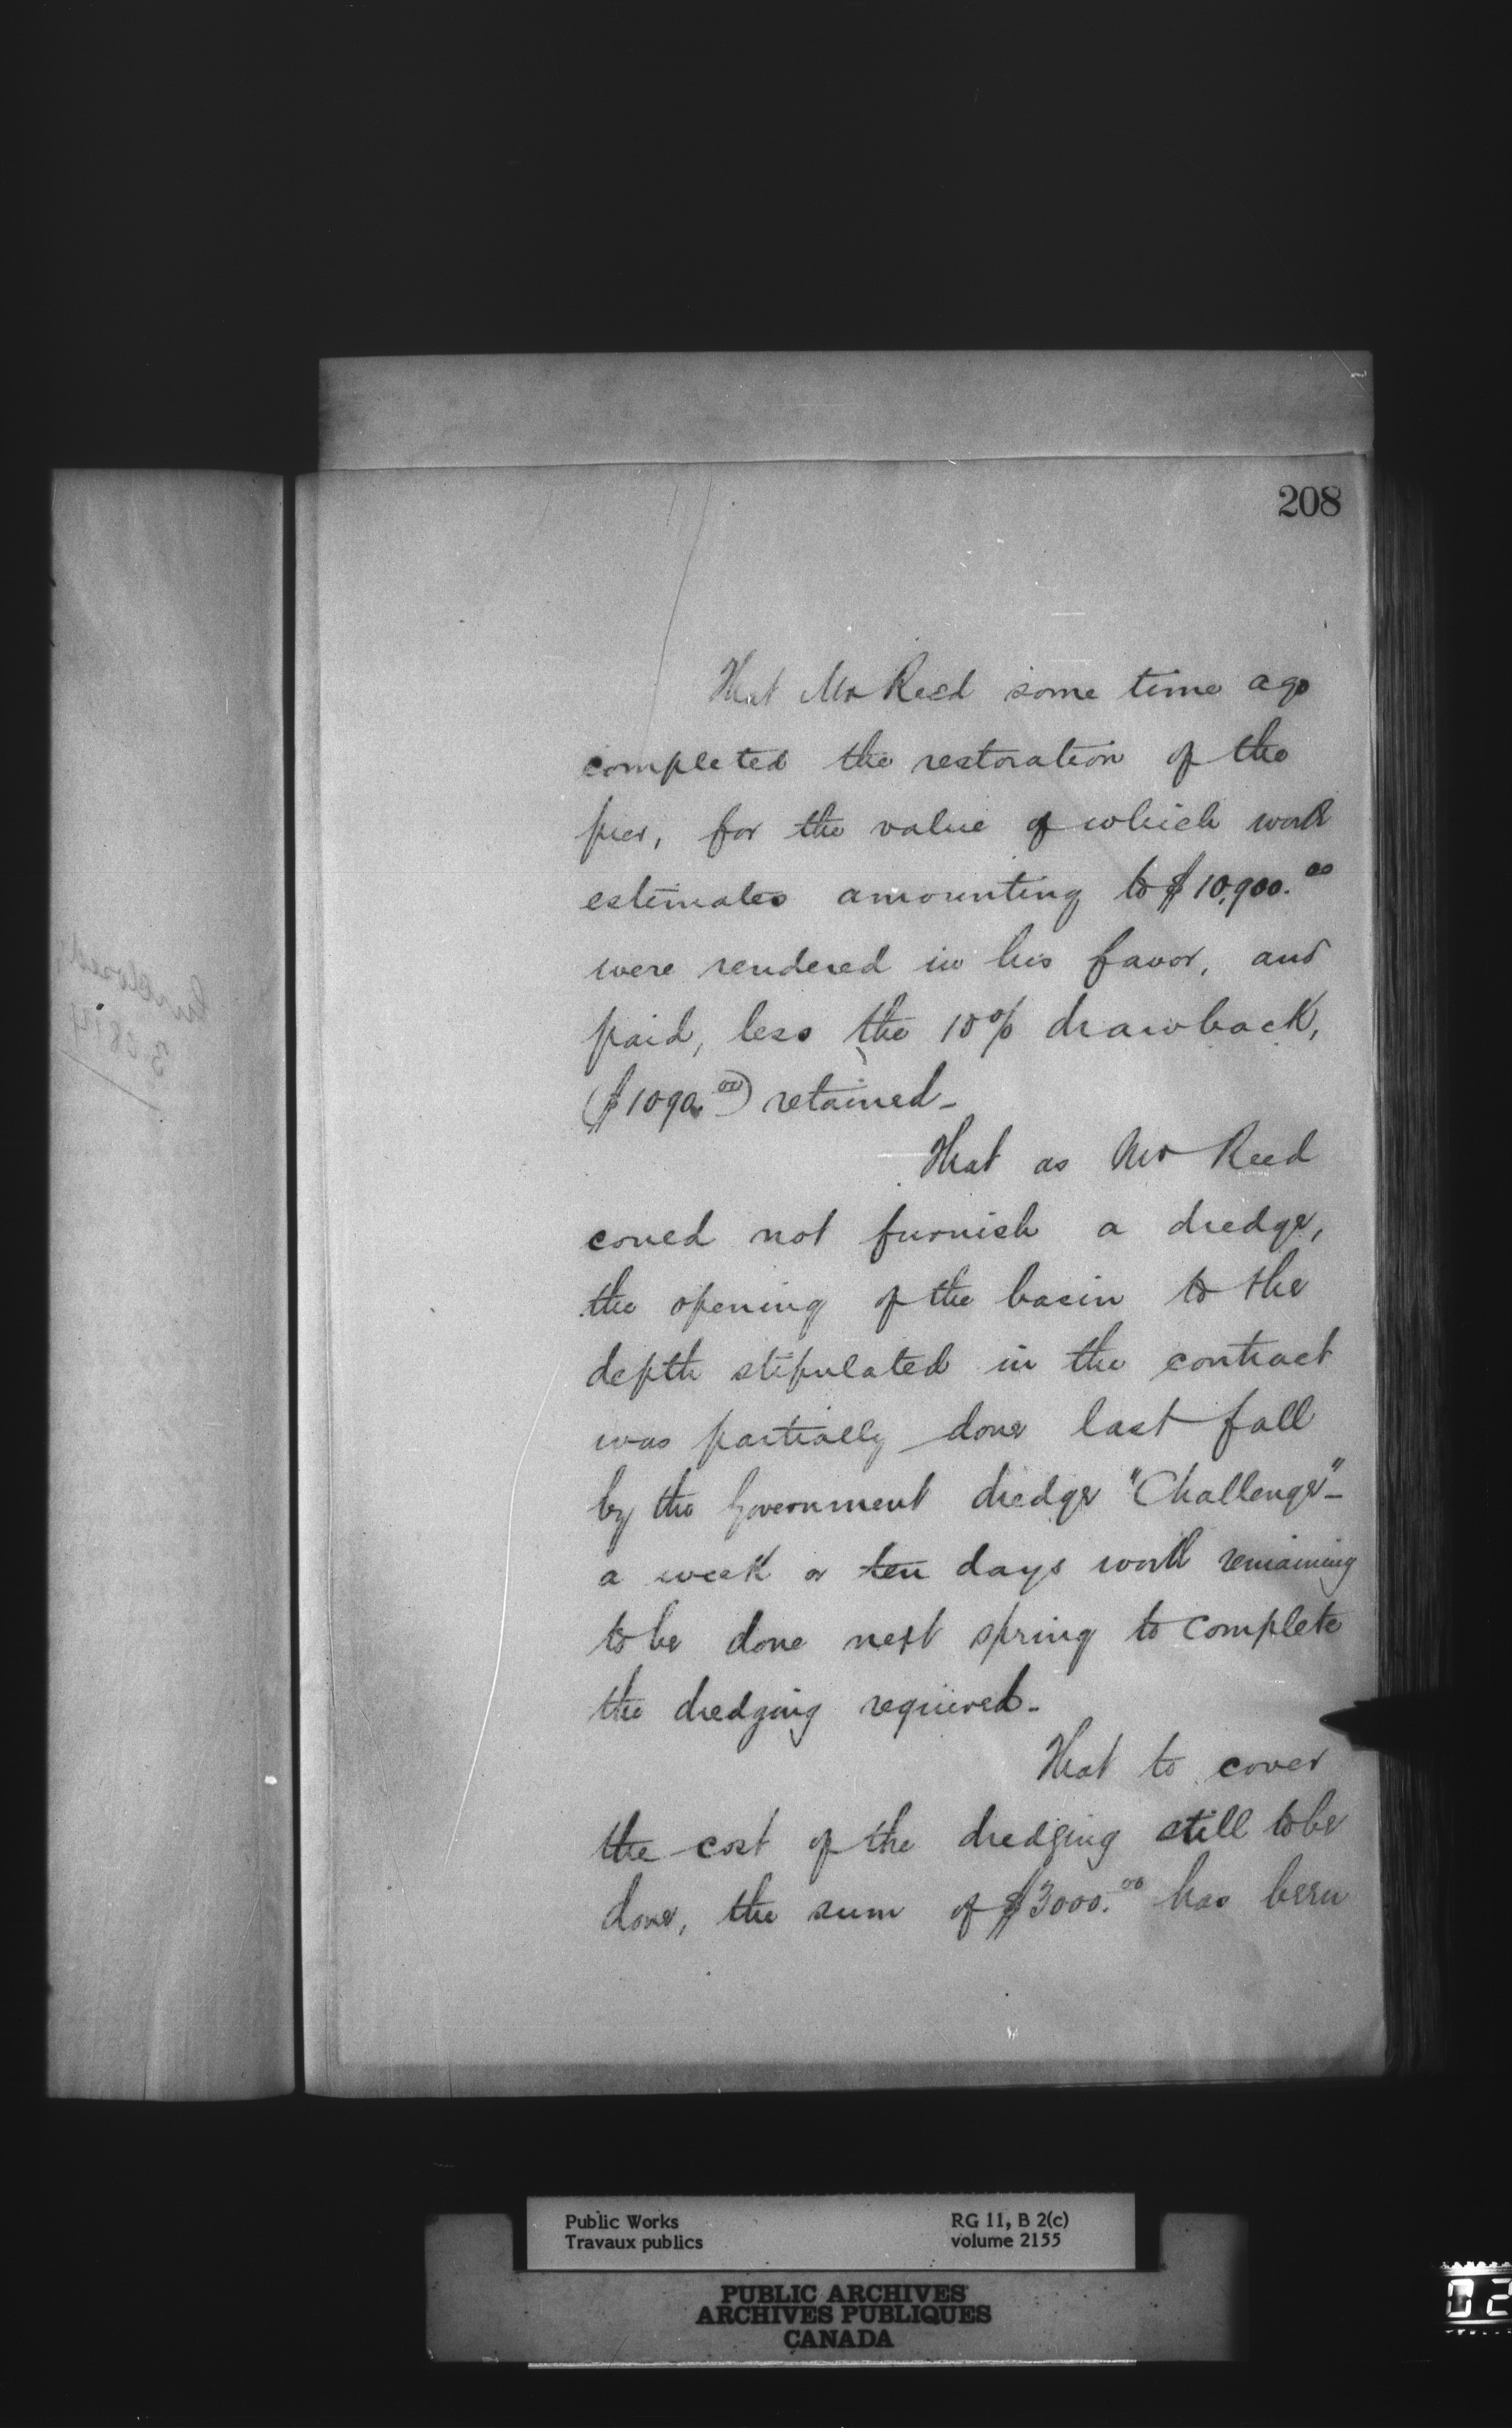 208
That Mr Reed some time ago
completed the restoration of the
pier, for the value of which work
estimates amounting to $10,900.00
were rendered in his favor, and
paid, less the 10% drawback,
($1090.00) retained-
That as Mr Reed
could not furnish a dredge,
the opening of the basin to the
depth stipulated in the contract
was partially done last fall
by the Government dredge "Challenge"-
a week or ten days work remaining
to be done next spring to complete
the dredging required-
That to cover
the cost of the dredging still to be
done, the sum of $3000.00 has been
Public Works
Travaux publics
RG 11, B 2(c)
volume 2155
PUBLIC ARCHIVES
ARCHIVES PUBLIQUES
CANADA
02